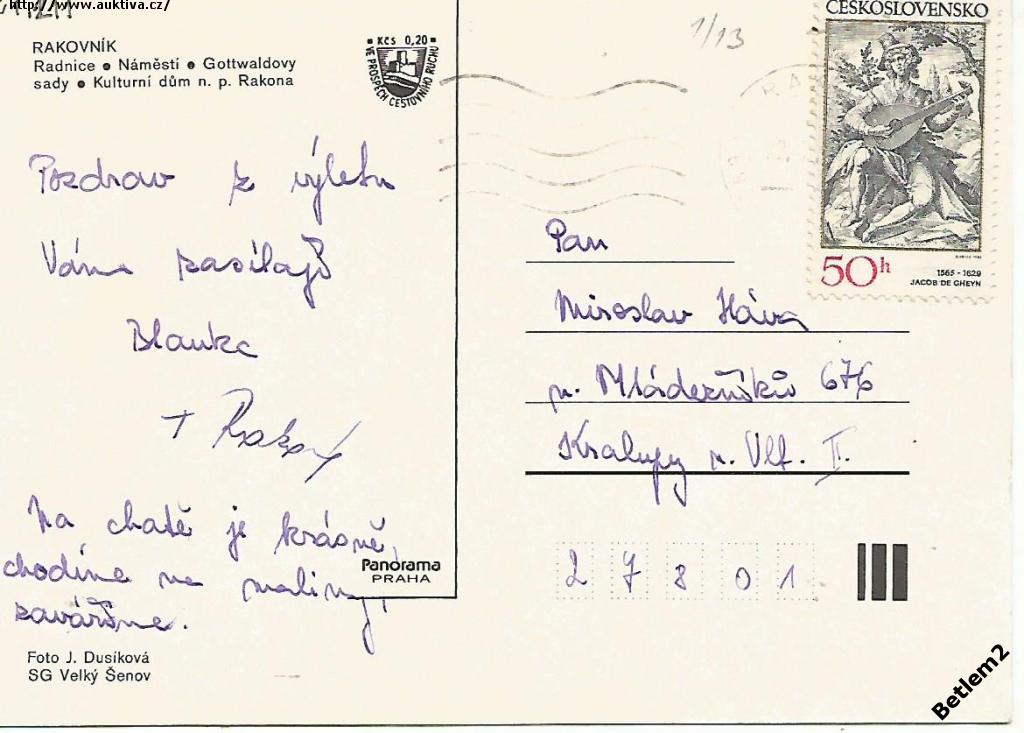 http://www.auktiva.cz/
RAKOVNÍK
Radnice • Náměstí • Gottwaldovy
sady • Kulturní dům n. p. Rakona
Kčs 0,20
VE PROSPĚCH CESTOVNÍHO RUCHU
1/13
ČESKOSLOVENSKO
50h
1565 - 1629
JACOB DE GHEYN
Pozdrav z výletu
Vám zasílají
Blanka
+
Na chatě je krásně,
chodíme na maliny,
zavaříme.
Panorama
PRAHA
Foto J. Dusíková
SG Velký Šenov
Pan
Miroslav Háva
n. Mládežníků 676
Kralupy n. Vlt. II.
27801
Betlem2